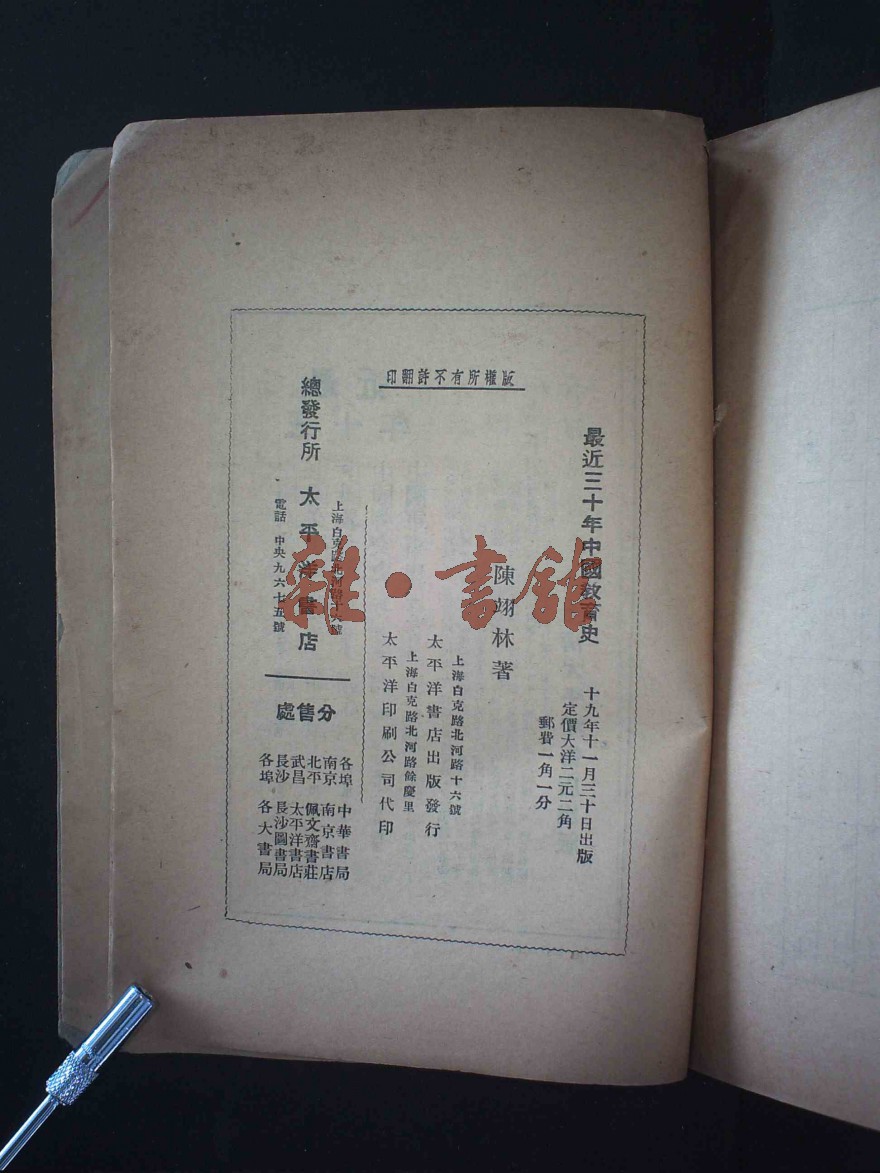 版權所有不許翻印
最近三十年中國教育史
十九年十一月三十日出版
定價大洋二元二角
郵費一角一分
陳翊林著
上海白克路北河路十六號
太平洋書店出版發行
上海白克路北河路餘慶里
太平洋印刷公司代印
總發行所 太平洋書店
上海白克路北河路十六號
電話 中央九六七五號
分售處
各埠 中華書局
南京 南京書店
北平 佩文齋書莊
武昌 太平洋書店
長沙 長沙圖書局
各埠 各大書局
雜·書館